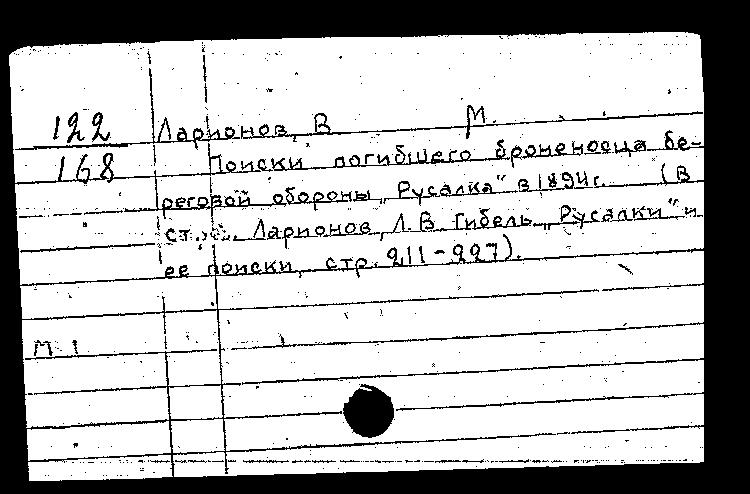 122 Ларионов, В. М.
168 Поиски погибшего броненосца бе-
реговой обороны „Русалка“ в 1894 г. (В
ст. Ларионов, Л. В. Гибель „Русалки“ и
ее поиски, стр. 211-227).
М 1